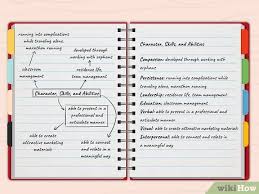 running into complications
while traveling alone,
marathon running
developed through
working with orphans
classroom
management
residence life,
team management
Character, Skills, and Abilities
able to present in a
professional and
articulate manner
able to create
attractive marketing
materials
able to connect
and relate in a
meaningful way
Character, Skills, and Abilities
Compassion: developed through working with orphans
Persistence: running into complications while
traveling alone, marathon running
Leadership: residence life, team management
Education: classroom management
Verbal: able to present in a professional and
articulate manner
Visual: able to create attractive marketing materials
Interpersonal: able to connect and relate in a
meaningful way
wikiHow